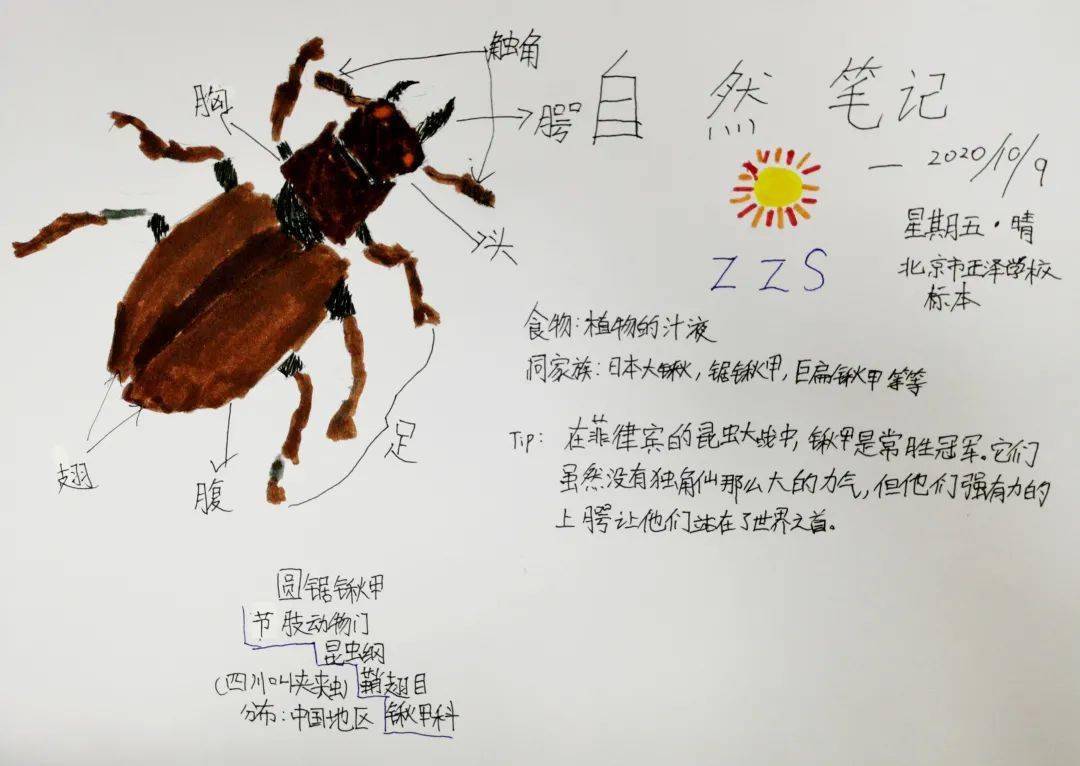 自 然 笔记
— 2020/10/9
星期五·晴
北京市正泽学校
标本
ZZS
触角
胸
腭
头
足
翅
腹
食物:植物的汁液
同家族:日本大锹,锯锹甲,巨扁锹甲等等
Tip: 在菲律宾的昆虫大战中,锹甲是常胜冠军。它们
虽然没有独角仙那么大的力气,但他们强有力的
上腭让他们站在了世界之首。
圆锯锹甲
节肢动物门
昆虫纲
(四川叫夹夹虫) 鞘翅目
分布:中国地区 锹甲科